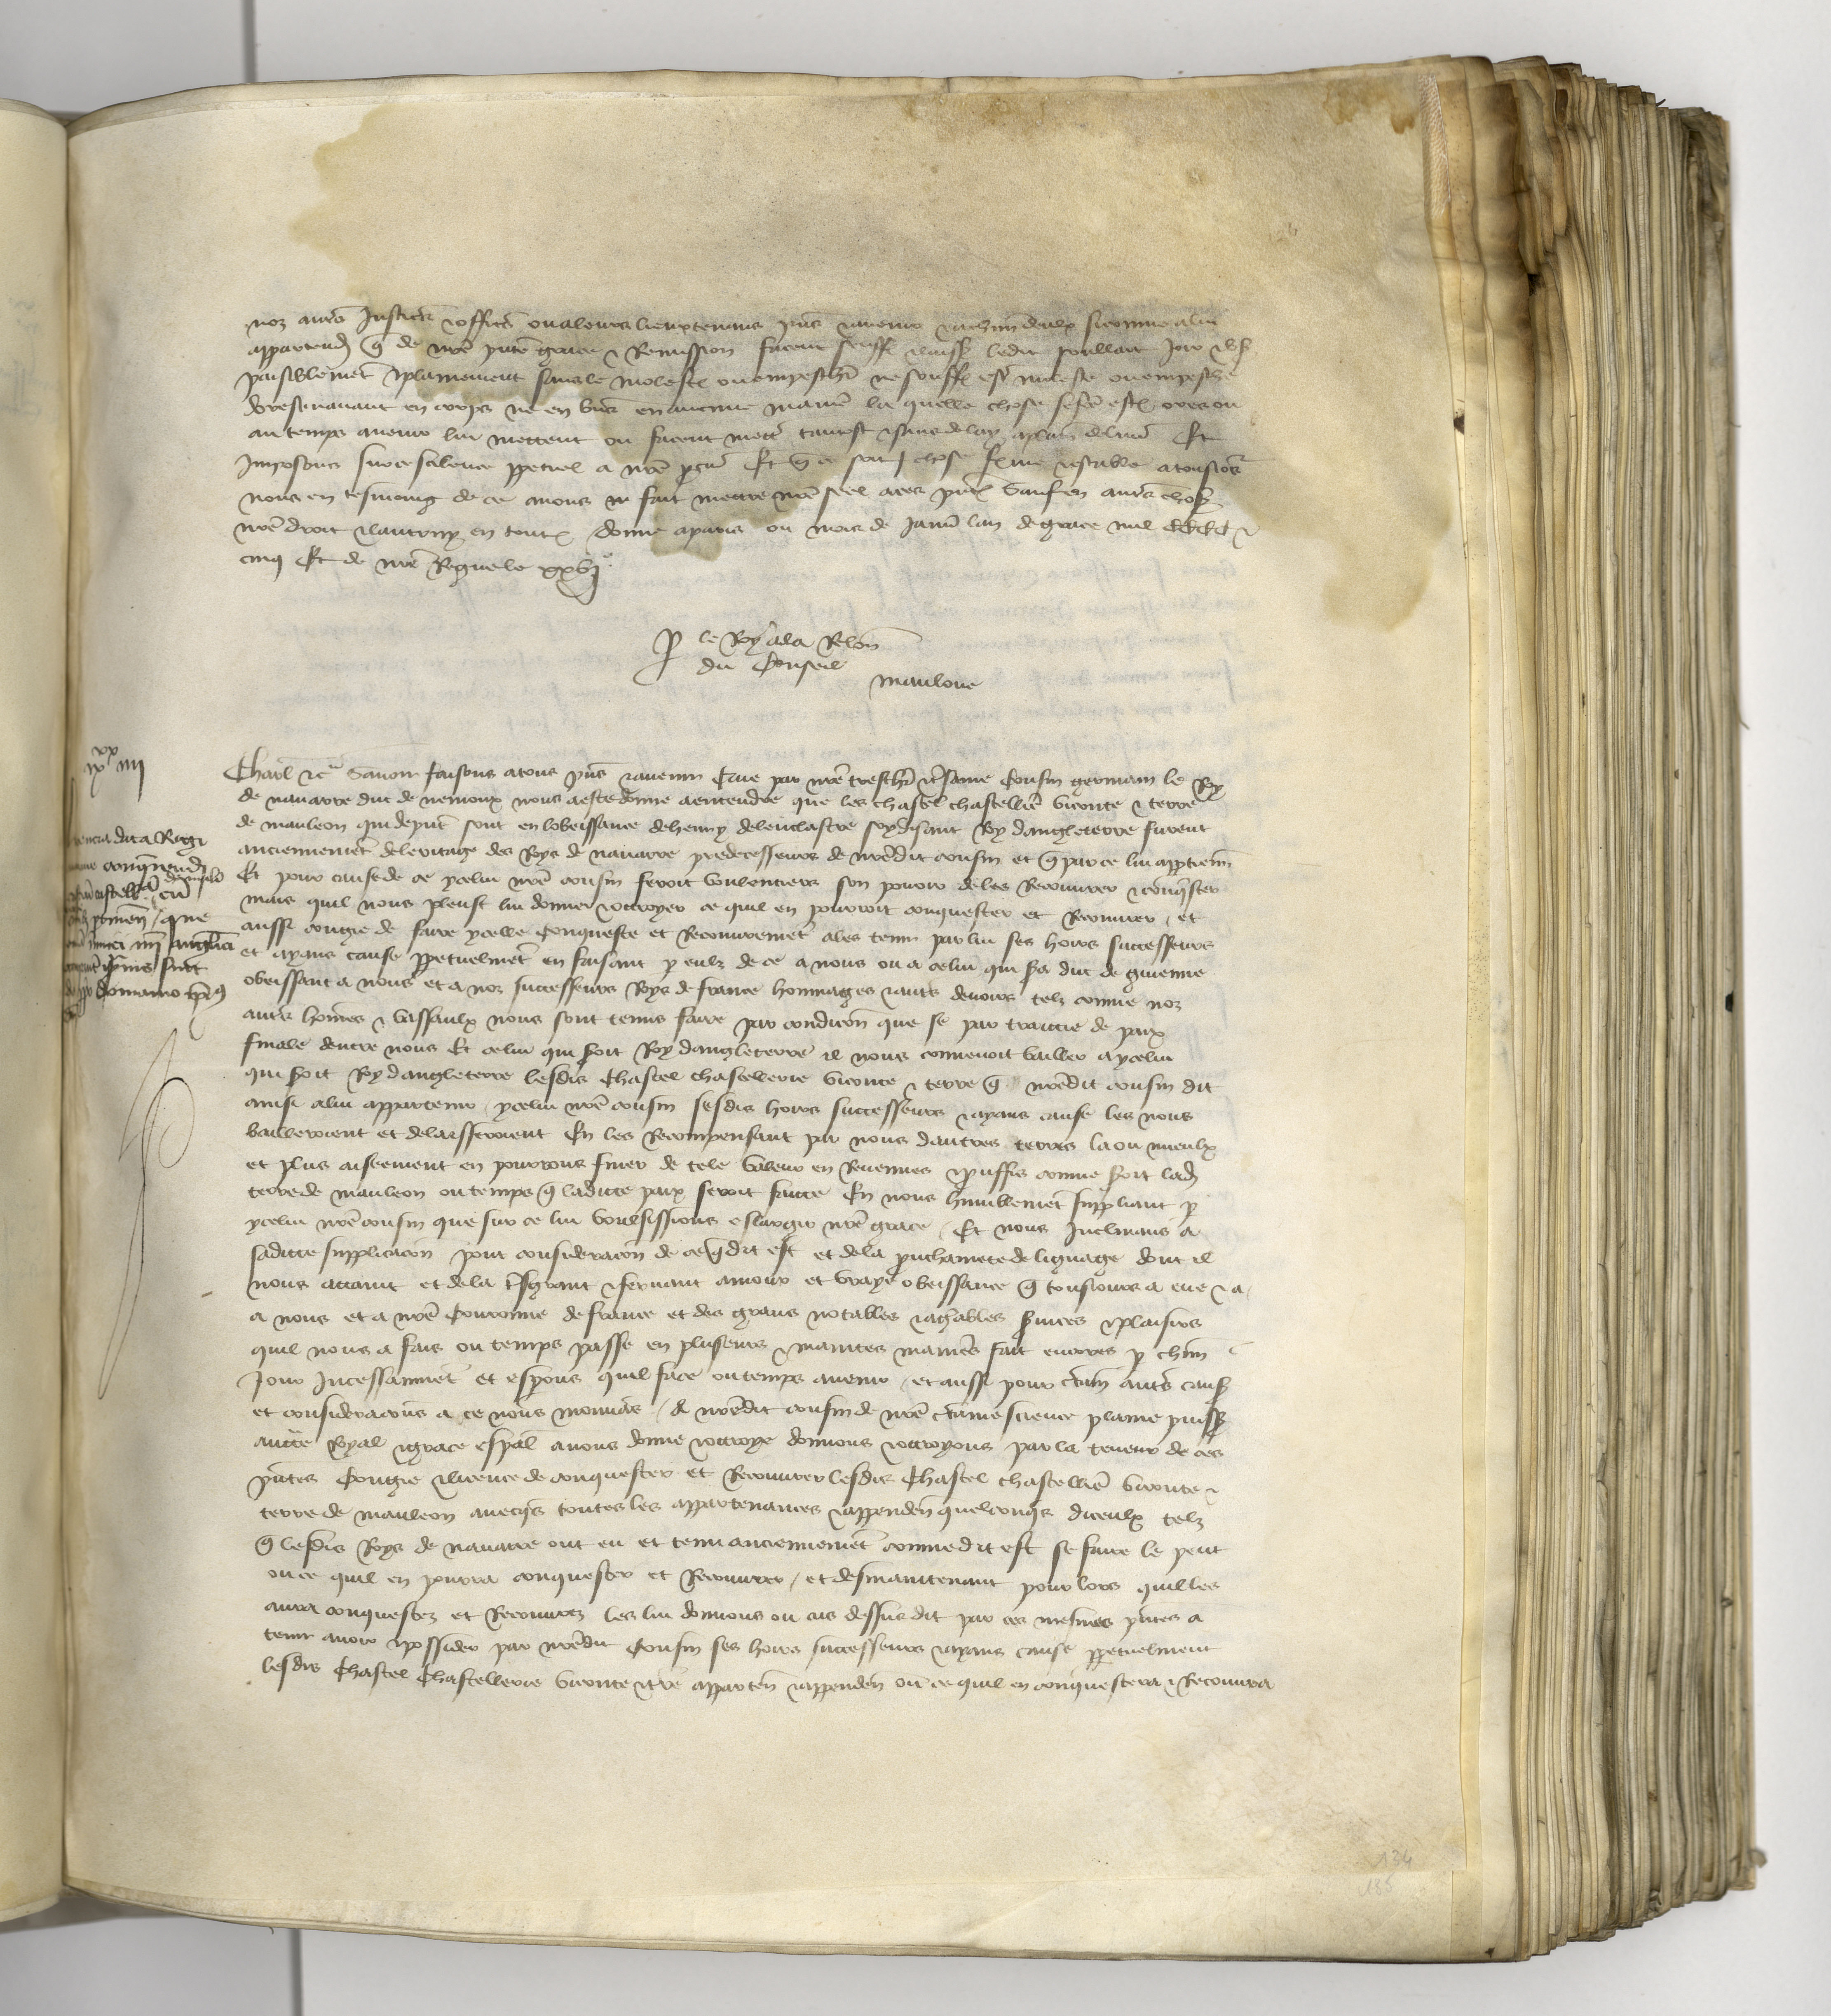 noz autres Justiciers & officiers ou a leurs lieuxtenans pñs & avenir & a chũn deulx si comme a lui
appartendra q̃ de nr̃e pñte grace & Remission facent seuffrent & laissent ledit joir & user
paisiblemẽt & plainement sans le molester ou empeschier ne souffrir estre moleste ou empesche
doresenavant en corps ne en biens en aucune maniẽ la quelle chose se fete estoit ores ou
au temps avenir lui mettent ou facent mettre tantost & sans delay a plain delivrẽ Et
Imposons sur ce scilence ppetuel a nr̃e pcur̃ Et q̃ ce soit chose ferme & estable a tousiours
nous en tesmoing de ce avons fait mettre nr̃e seel a ces pñtes Sauf en autres choses
nr̃e droit & lautruy en toutes Donne a paris ou mois de Januier lan de grace mil CCCC &
cinq Et de nr̃e Regne le xxvj.
P le Roy a la Relon̄
du Conseil
Manloue
ixxx iiij
Charl &c̃ Savoir faisons a tous pñs & avenir Que par nr̃e treschr̃ & tresame Cousin germain le Roy
de navarre duc de nemoux nous a este donne a entendre que les chastel chastelleiẽ viconte & terre
de mauleon qui de pñt sont en lobeissance de henry de lenclastre soy disant Roy dangleterre furent
anciennemẽt de leritage des Roys de navarre predecesseurs de nr̃edit cousin et q̃ par ce lui apptienñ
Et pour cause de ce ycelui nr̃e cousin feroit voulentiers son pouoir de les Recouvrer & conq̃ster
mais quil nous pleust lui donner & ottroyer ce quil en pourroit conquester et Recouvrer / et
aussi congie de faire ycelle Conqueste et Recouvremẽt a les tenir par lui ses hoirs successeurs
et ayans cause ppetuelmẽt en faisant p eulz de ce a nous ou a celui qui sera duc de guienne
obeissant a nous et a noz successeurs Roys de france hommages & autres devoirs telz comme noz
autres hom̃es & vassaulx nous sont tenus faire par condicion̄ que se par traictie de paix
finale dentre nous Et celui qui seroit Roy dangleterre il nous convenoit bailler a ycelui
qui seroit Roy dangleterre lesdis Chastel chastellerie viconte & terre q̃ nr̃edit cousin dit
ainsi a lui appartenir / ycelui nr̃e cousin sesdis hoirs successeurs & ayans cause les nous
bailleroient et delaisseroient En les Recompensant par nous dautres terres la ou mieulx
et plus aiseement en pourrons finer de tele valeur en Revenues & prouffis comme seroit ladc̃
terre de mauleon ou temps q̃ ladicte paix seroit faicte En nous humblemẽt suppliant p
ycelui nr̃e cousin que sur ce lui voulsissions eslargir nr̃e grace / Et nous Inclinans a
sadicte supplicacion̄ pour consideracion̄ de ce q̃ dit est et de la prouchainete de lignage dont il
nous attaint et de la tresgrant & fervant amour et vraye obeissance q̃ tousiours a eue & a
a nous et a nr̃e Couronne de france et des grans notables & agreables services & plaisirs
quil nous a fais ou temps passe en plusieurs & maintes maniẽs fait encores p chũn
Jour Incessanmẽt et esperons quil face ou temps avenir / et aussi pour certaines autres causes
et consideracions a ce nous mouvans / A nr̃edit cousin de nr̃e certaine science plaine puissance
aucte Royal & grace espal avons donne & ottroye donnons & ottroyons par la teneur de ces
pñtes Congie & licence de conquester et Recouvrer lesdis Chastel chastelleiẽ viconte &
terre de mauleon avecqs toutes les appartenances & appenden̄ quelconq̃s diceulx telz
q̃ lesdis Roys de navarre ont eu et tenu anciennemẽt comme dit est se faire le peut
ou ce quil en pourra conquester et Recouvrer / et desmaintenant pour lors quil les
aura conquestez et Recouvrez les lui donnons ou cas dessus dit par ces mesmes pñtes a
tenir avoir & posseder par nr̃edit Cousin ses hoirs successeurs & ayans cause ppetuelment
lesdis Chastel Chastellerie viconte & tr̃e apparten̄ & appenden̄ ou ce quil en conquestera & Recouvrera
data Regi
conq̃rendi
que
domanio
134
135